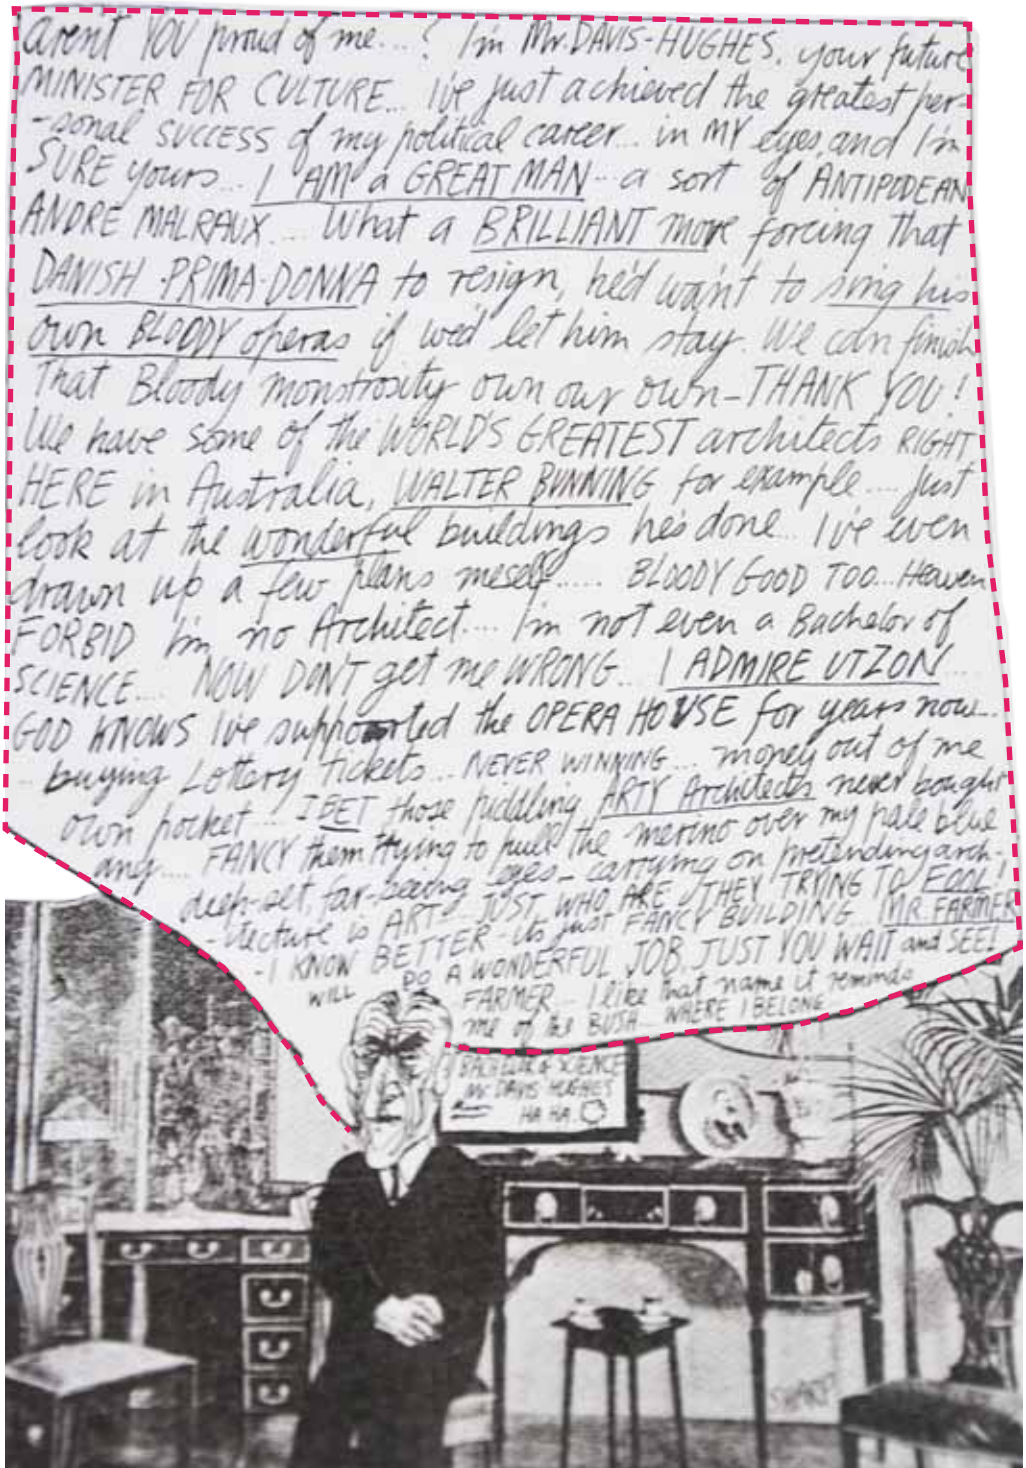 aren't YOU proud of me....? I'm Mr. DAVIS-HUGHES, your future
MINISTER FOR CULTURE... I've just achieved the greatest per-
-sonal SUCCESS of my political career... in MY eyes, and I'm
SURE yours... I AM a GREAT MAN... a sort of ANTIPODEAN
ANDRE MALRAUX.... What a BRILLIANT move forcing that
DANISH PRIMA-DONNA to resign, he'd want to sing his
own BLOODY operas if we'd let him stay. We can finish
That Bloody monstrosity own our own - THANK YOU!
We have some of the WORLD'S GREATEST architects RIGHT
HERE in Australia, WALTER BUNNING for example.... Just
look at the wonderful buildings he's done... I've even
drawn up a few plans meself..... BLOODY GOOD TOO... Heaven
FORBID I'm no Architect.... I'm not even a Bachelor of
SCIENCE.... NOW DON'T get me WRONG... I ADMIRE UTZON...
GOD KNOWS I've supported the OPERA HOUSE for years now...
... buying Lottery Tickets... NEVER WINNING... money out of me
own pocket...! I BET those piddling ARTY Architects never bought
any.... FANCY them trying to pull the merino over my pale blue
deep-set, far-seeing eyes - carrying on pretending arch-
-itecture is ART... JUST WHO ARE THEY TRYING TO FOOL!
- I KNOW BETTER - its just FANCY BUILDING. MR. FARMER
WILL DO A WONDERFUL JOB, JUST YOU WAIT and SEE!
FARMER... I like that name it reminds
me of the BUSH... WHERE I BELONG
BACHELOR of SCIENCE
Mr. DAVIS HUGHES
HA HA.